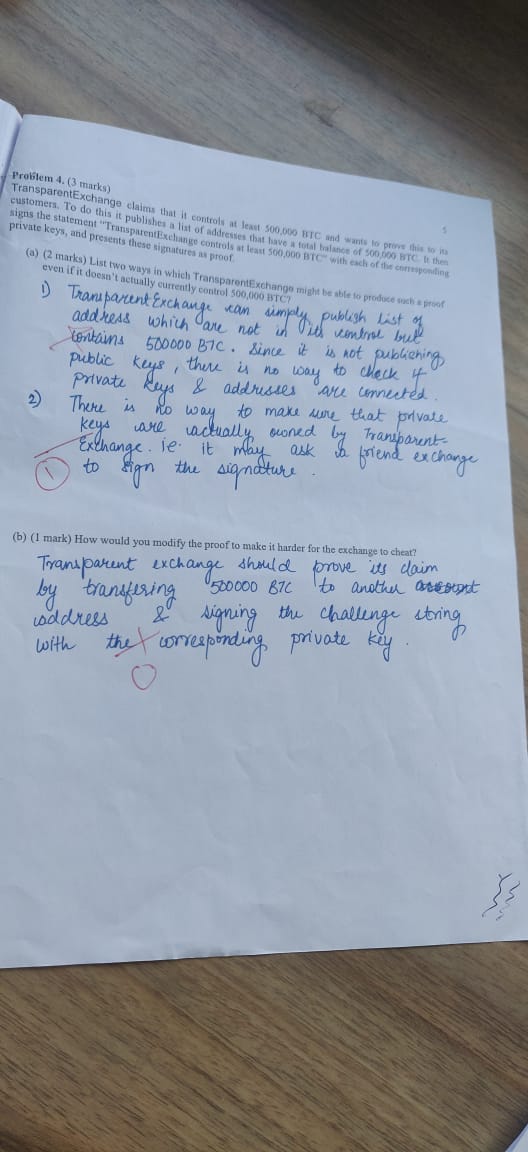 5
Problem 4. (3 marks)
TransparentExchange claims that it controls at least 500,000 BTC and wants to prove this to its
customers. To do this it publishes a list of addresses that have a total balance of 500,000 BTC. It then
signs the statement "TransparentExchange controls at least 500,000 BTC" with each of the corresponding
private keys, and presents these signatures as proof.
(a) (2 marks) List two ways in which TransparentExchange might be able to produce such a proof
even if it doesn't actually currently control 500,000 BTC?
1) Transparent Exchange can simply publish list of
address which are not in its control but
contains 500000 BTC. Since it is not publiching
public keys, there is no way to check if
private keys & addresses are connected.
2) There is no way to make sure that private
keys are actually owned by Transparent-
Exchange. ie. it may ask a friend exchange
to sign the signature.
1
(b) (1 mark) How would you modify the proof to make it harder for the exchange to cheat?
Transparent exchange should prove its claim
by transfering 500000 BTC to another account
address & signing the challenge string
with the corresponding private key.
0